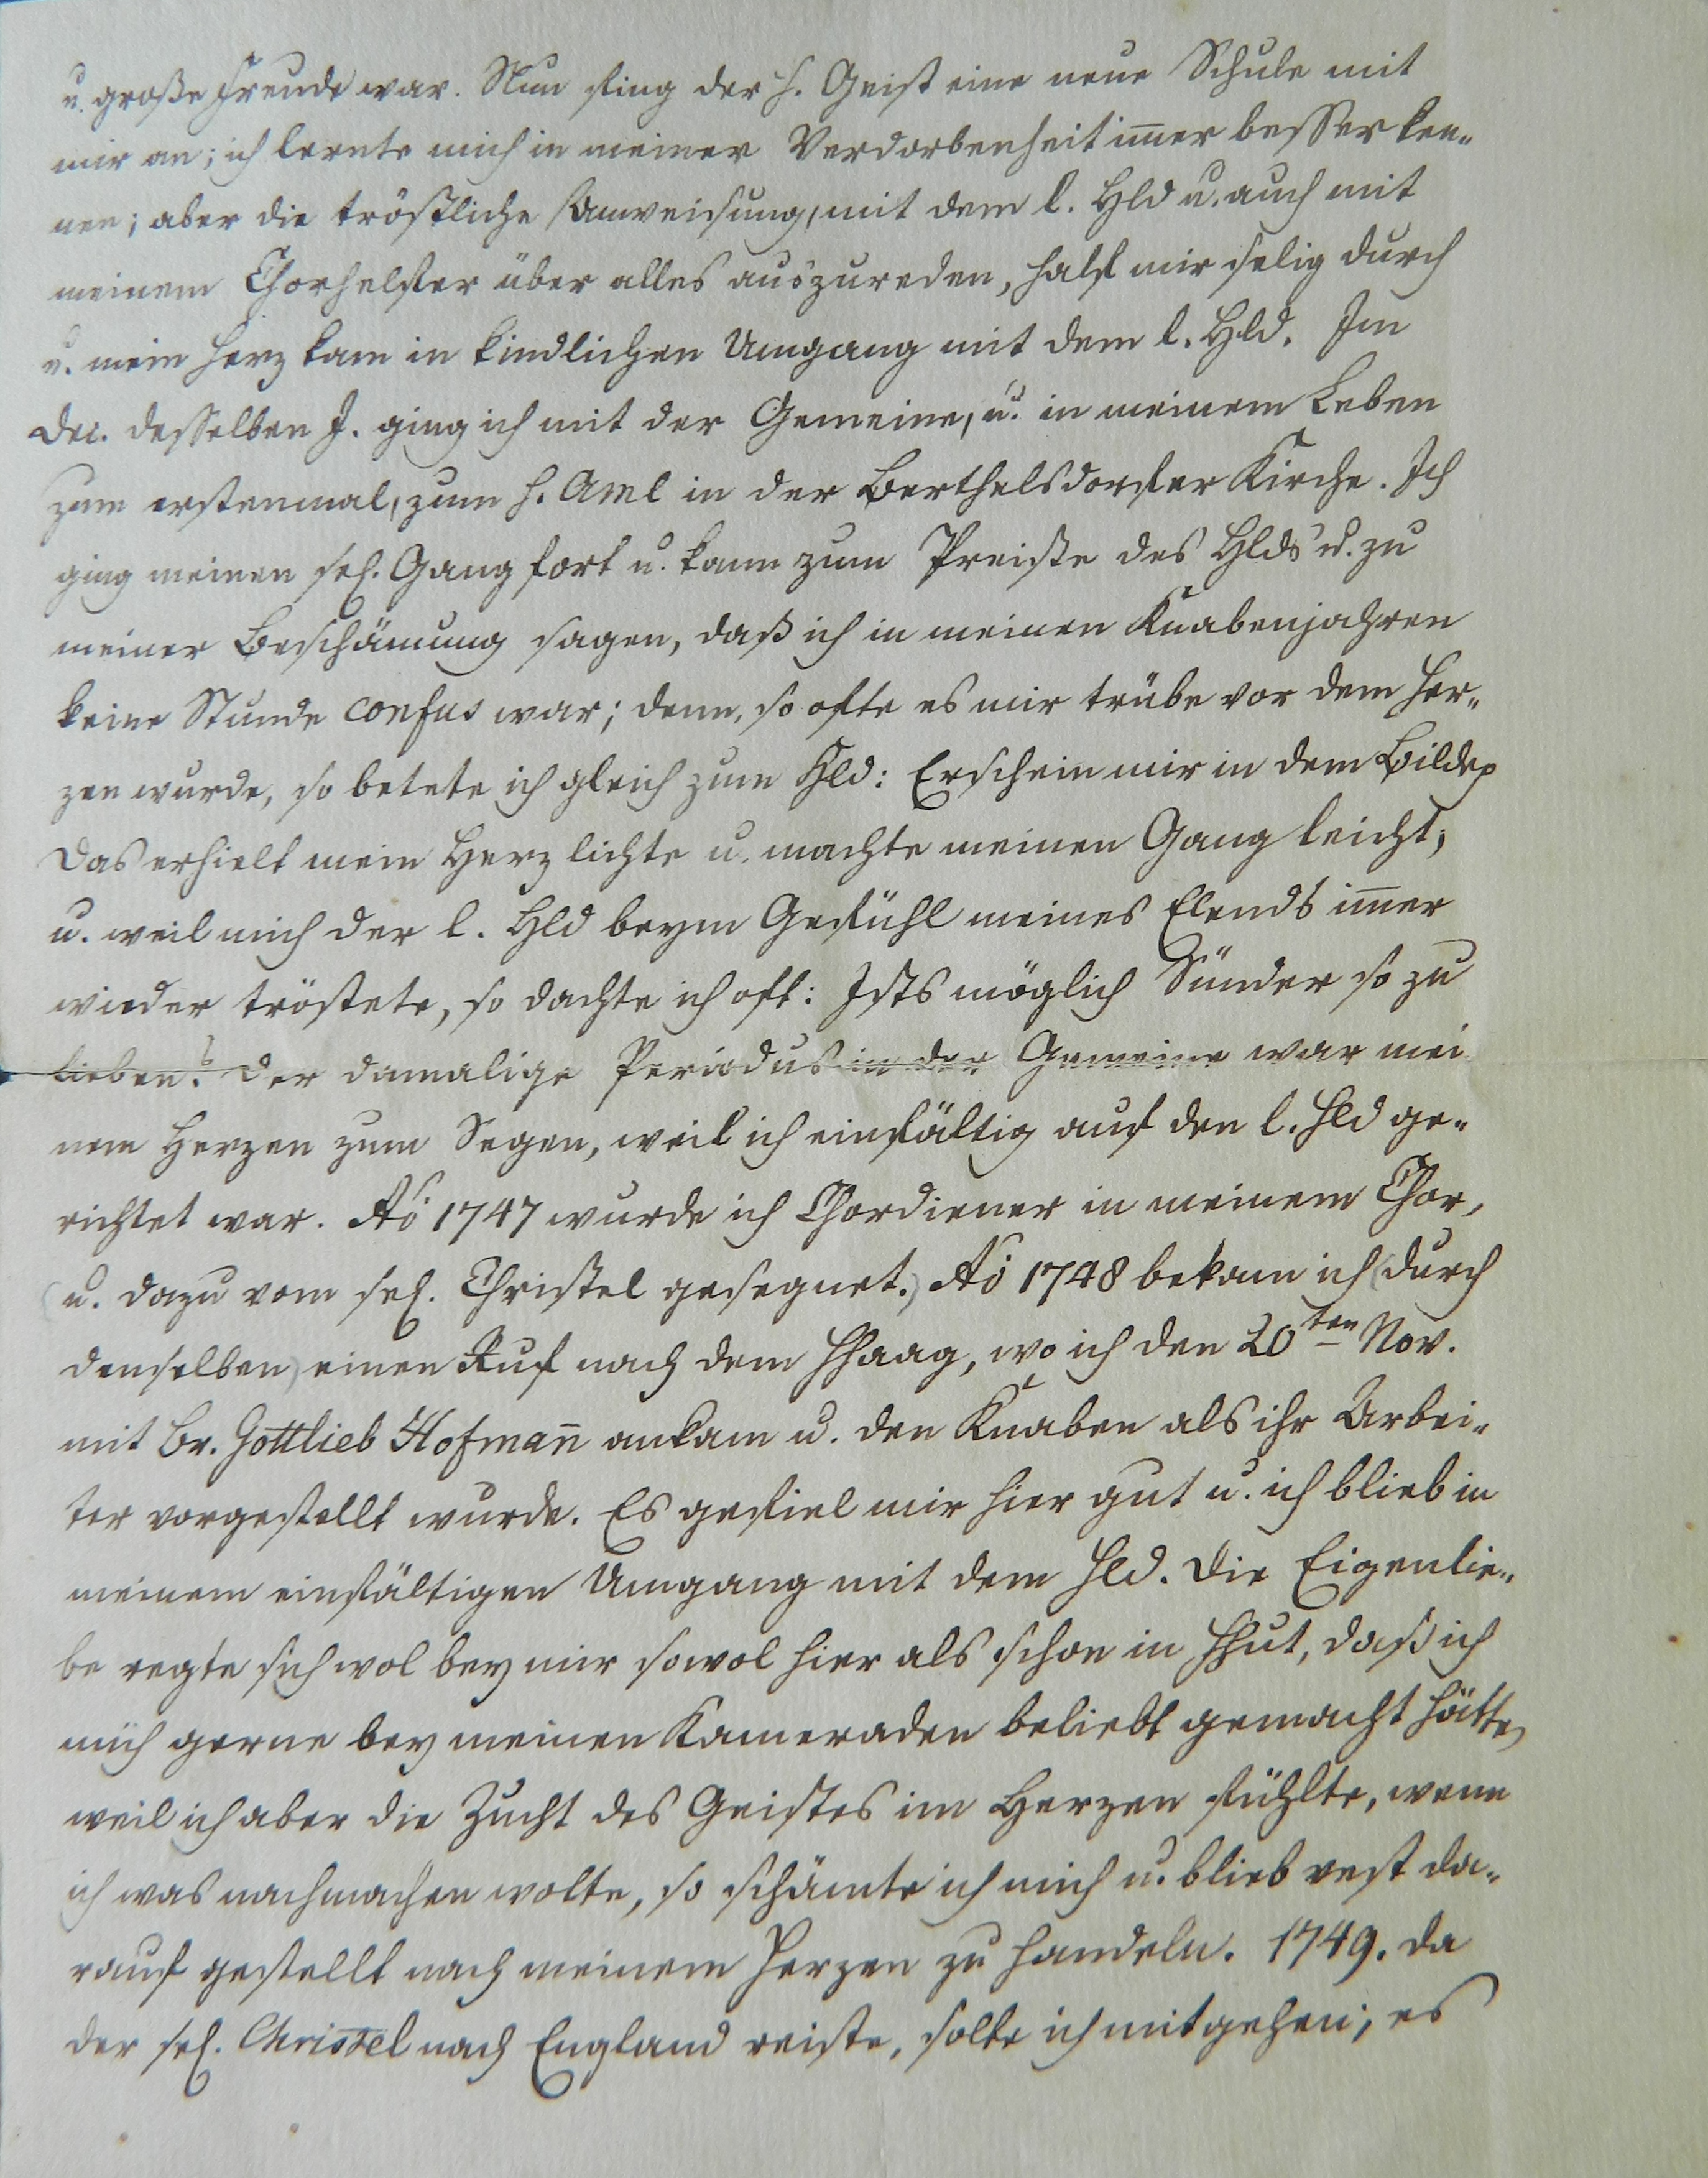 u. große Freude war. Nun fing der h. Geist eine neue Schule mit
mir an; ich lernte mich in meiner Verdorbenheit im̄er besser ken„
nen; aber die tröstliche Anweisung, mit dem l. Hld u. auch mit
meinem Chorhelfer über alles auszureden, half mir selig durch
u. mein Herz kam in kindlichen Umgang mit dem l. Hld. Im
Dec. desselben J. ging ich mit der Gemeine, u. in meinem Leben
zum erstenmal, zum h. Aml in der Berthelsdorfer Kirche. Ich
ging meinen sel. Gang fort u. kann zum Preiße des Hlds u. zu
meiner Beschämung sagen, daß ich in meinen Knabenjahren
keine Stunde confus war; denn, so ofte es mir trübe vor dem Her„
zen wurde, so betete ich gleich zum Hld: Erschein mir in dem Bilde p
Das erhielt mein Herz lichte u. machte meinen Gang leicht,
u. weil mich der l. Hld beym Gefühl meines Elends im̄er
wieder tröstete, so dachte ich oft: Ists möglich Sünder so zu
lieben? Der damalige Periodus in der Gemeine war mei
nem Herzen zum Segen, weil ich einfältig auf den l. Hld ge„
richtet war. Ao 1747 wurde ich Chordiener in meinem Chor,
(u. dazu vom sel. Christel gesegnet.) Ao 1748 bekam ich (durch
denselben) einen Ruf nach dem HHaag, wo ich den 20ten Nov.
mit Br. Gottlieb Hofman̄ ankam u. den Knaben als ihr Arbei„
ter vorgestellt wurde. Es gefiel mir hier gut u. ich blieb in
meinem einfältigen Umgang mit dem Hld. Die Eigenlie„
be regte sich wol bey mir sowol hier als schon in HHut, daß ich
mich gerne bey meinen Kameraden beliebt gemacht hätte,
weil ich aber die Zucht des Geistes im Herzen fühlte, wenn
ich was nachmachen wolte, so schämte ich mich u. blieb vest da„
rauf gestellt nach meinem Herzen zu handeln. 1749. da
der sel. Christel nach England reiste, solte ich mitgehen; es